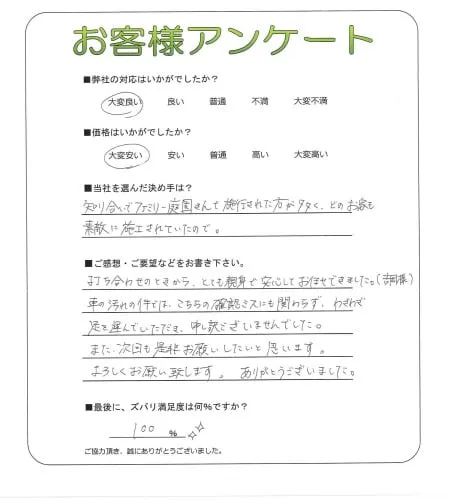 お客様アンケート
■弊社の対応はいかがでしたか?
大変良い 良い 普通 不満 大変不満
■価格はいかがでしたか?
大変安い 安い 普通 高い 大変高い
■当社を選んだ決め手は?
知り合いでファミリー庭園さんで施行された方が多く、どのお宅も
素敵に施工されていたので。
■ご感想・ご要望などをお書き下さい。
打ち合わせのときから、とても親身で安心してお任せできました。(吉岡様)
車の汚れの件では、こちらの確認ミスにも関わらず、わざわざ
足を運んでいただき、申し訳ございませんでした。
また、次回も是非お願いしたいと思います。
よろしくお願い致します。 ありがとうございました。
■最後に、ズバリ満足度は何%ですか?
100 %
ご協力頂き、誠にありがとうございました。